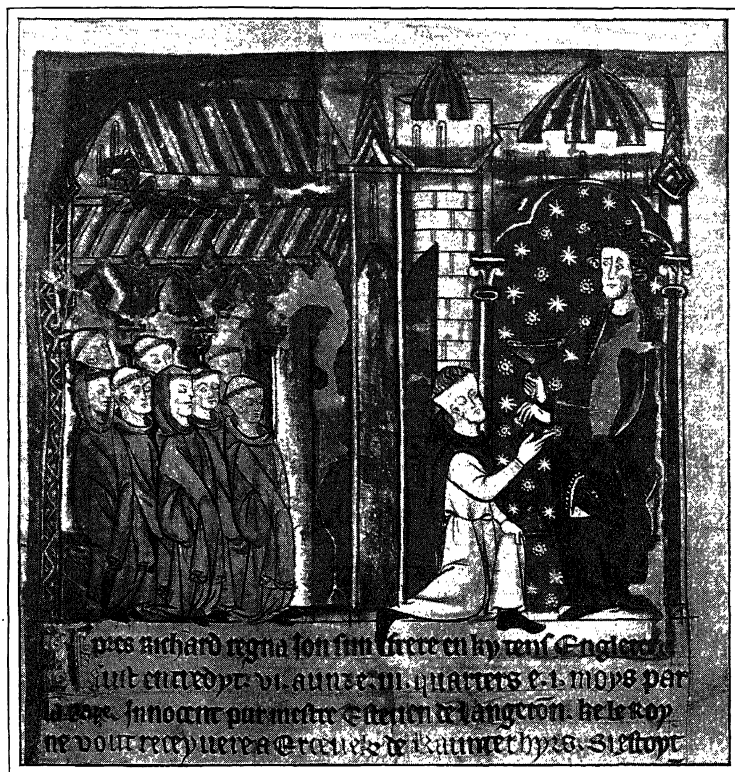 pres Richard regna Jon sun frere en ky tens Engletere
fust entredyt. vi. aunz e. iii. quarters e. i. moys par
la Pape. Innocent pur mestre Estevene de Langeton. ke le Roy
ne vout receyvere a Ercevek de Kaunterbyrs. Si estoyt